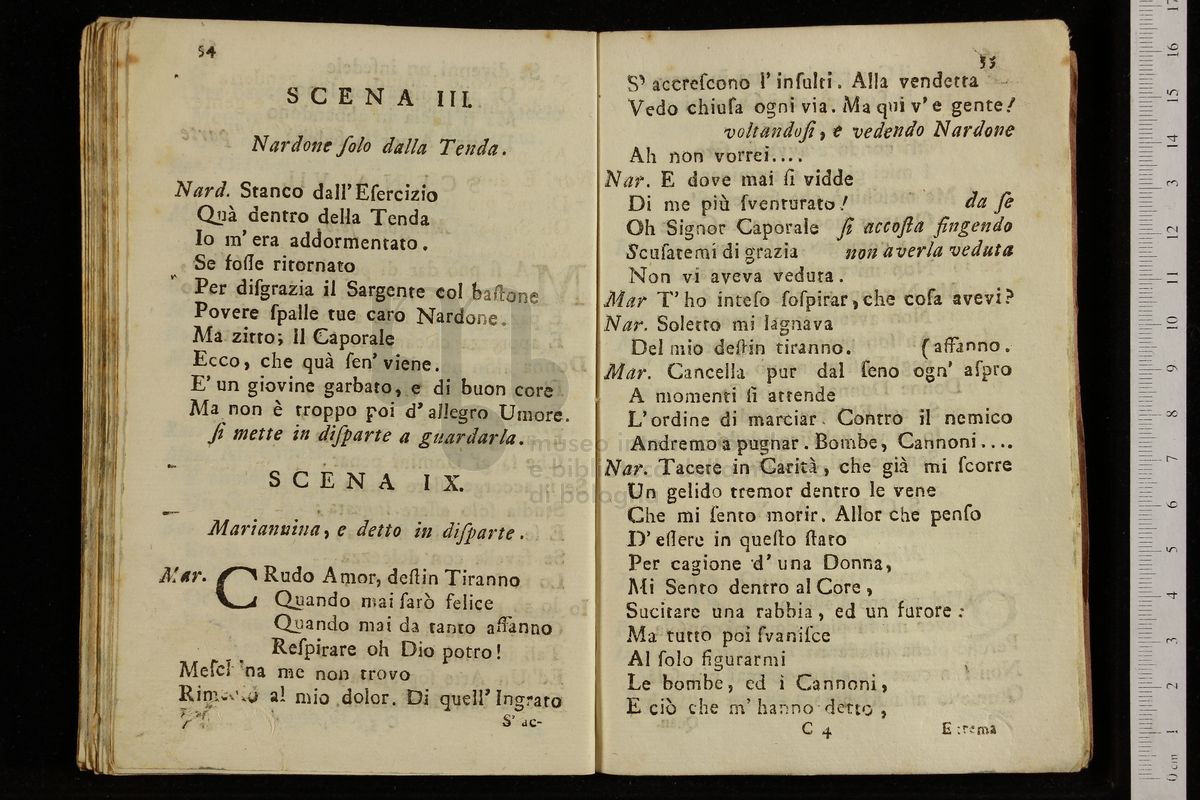 54
SCENA III.
Nardone ſolo dalla Tenda.
Nard. Stanco dall' Eſercizio
Quà dentro della Tenda
Io m' era addormentato.
Se foſſe ritornato
Per diſgrazia il Sargente col baſtone
Povere ſpalle tue caro Nardone.
Ma zitto; Il Caporale
Ecco, che quà ſen' viene.
E' un giovine garbato, e di buon core
Ma non è troppo poi d' allegro Umore.
ſi mette in diſparte a guardarla.
SCENA IX.
Mariannina, e detto in diſparte.
Mar. CRudo Amor, deſtin Tiranno
Quando mai ſarò felice
Quando mai da tanto affanno
Reſpirare oh Dio potro!
na me non trovo
al mio dolor. Di quell' Ingrato
S' ac-
55
S' accreſcono l' inſulti. Alla vendetta
Vedo chiuſa ogni via. Ma qui v' e gente!
voltandoſi, e vedendo Nardone
Ah non vorrei....
Nar. E dove mai ſi vidde
Di me più ſventurato! da ſe
Oh Signor Caporale ſi accoſta fingendo
Scuſatemi di grazia non averla veduta
Non vi aveva veduta.
Mar T' ho inteſo ſoſpirar, che coſa avevi?
Nar. Soletto mi lagnava
Del mio deſtin tiranno. (affanno.
Mar. Cancella pur dal ſeno ogn' aſpro
A momenti ſi attende
L' ordine di marciar. Contro il nemico
Andremo a pugnar. Bombe, Cannoni....
Nar. Tacete in Carità, che già mi ſcorre
Un gelido tremor dentro le vene
Che mi ſento morir. Allor che penſo
D' eſſere in queſto ſtato
Per cagione d' una Donna,
Mi Sento dentro al Core,
Sucitare una rabbia, ed un furore:
Ma tutto poi ſvaniſce
Al ſolo figurarmi
Le bombe, ed i Cannoni,
E ciò che m' hanno detto,
C 4 E
museo in
e biblioteca della musica
di bologna
0 cm 1 2 3 4 5 6 7 8 9 10 11 12 13 14 15 16 17